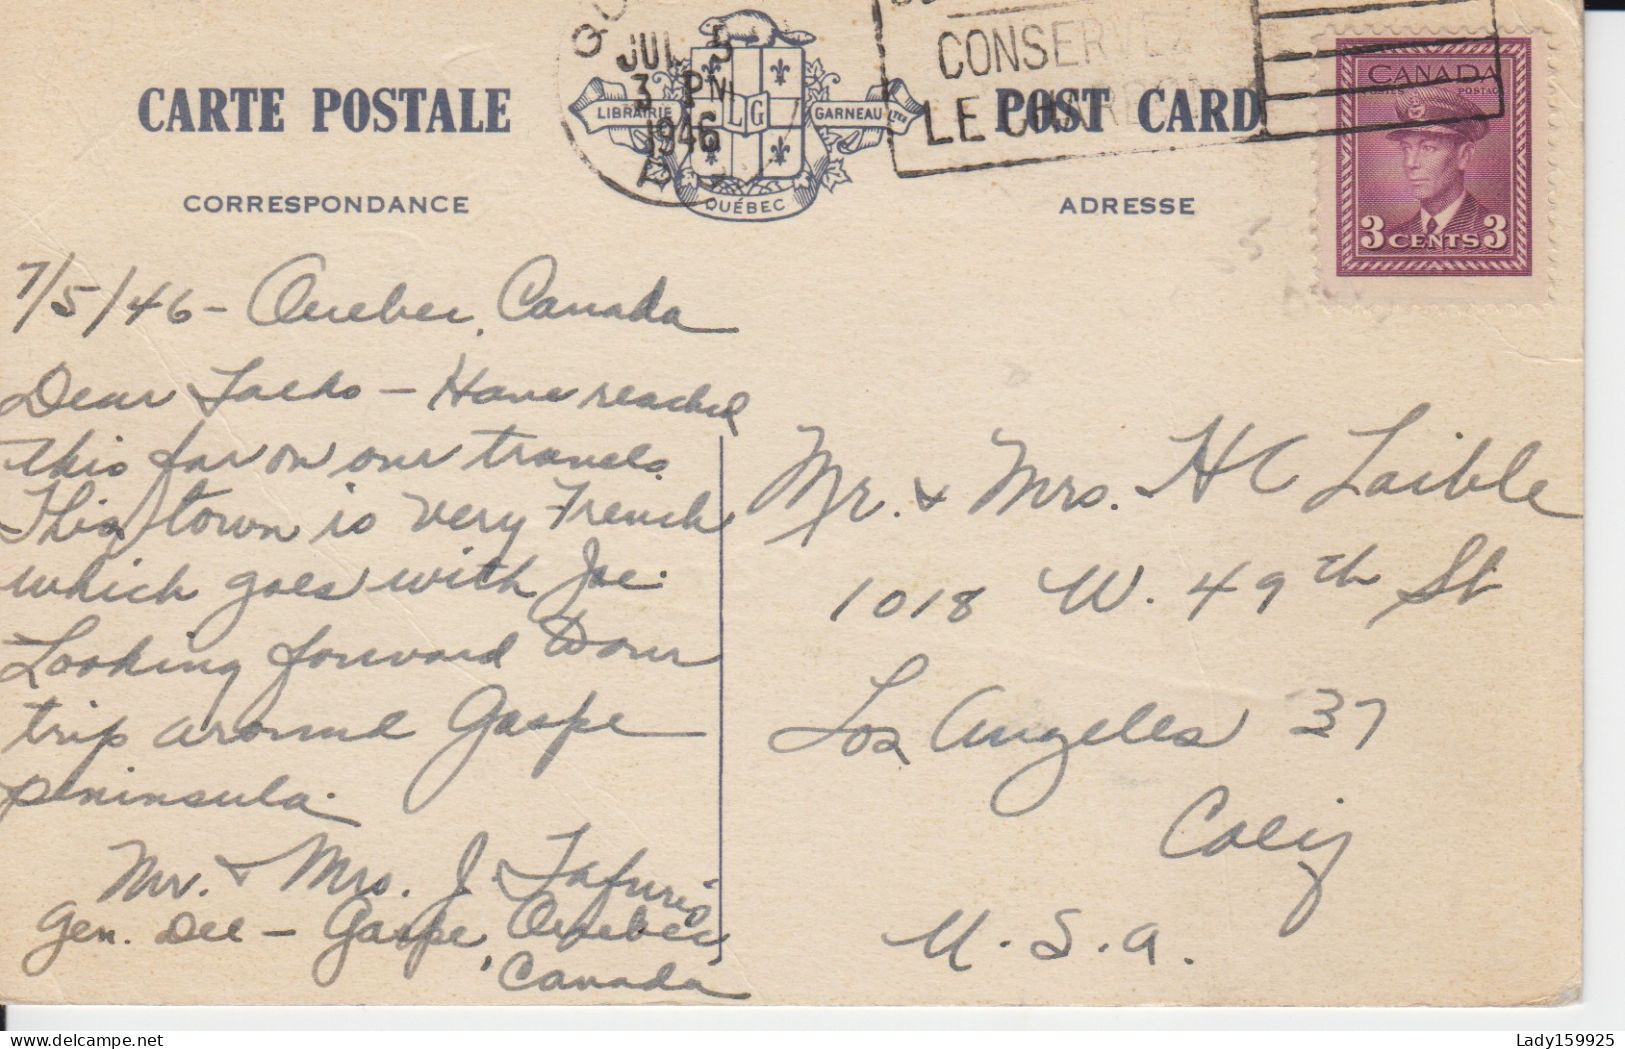 JUL 5
3 PM
1946
P
CONSERVEZ
LE CHARBON
CANADA
POSTES POSTAGE
3 CENTS 3
CARTE POSTALE
LIBRAIRIE
LG
GARNEAU LTÉE
QUÉBEC
POST CARD
CORRESPONDANCE
ADRESSE
7/5/46 - Quebec, Canada
Dear Folks - Have reached
this far on our travels.
This town is very French
which goes with Joe.
Looking forward to our
trip around Gaspe
peninsula.
Mr. & Mrs. J. Tafuri
Gen. Del - Gaspe, Quebec,
Canada
Mr. & Mrs. H C Laible
1018 W. 49th St
Los Angeles 37
Calif
U.S.A.
Lady159925